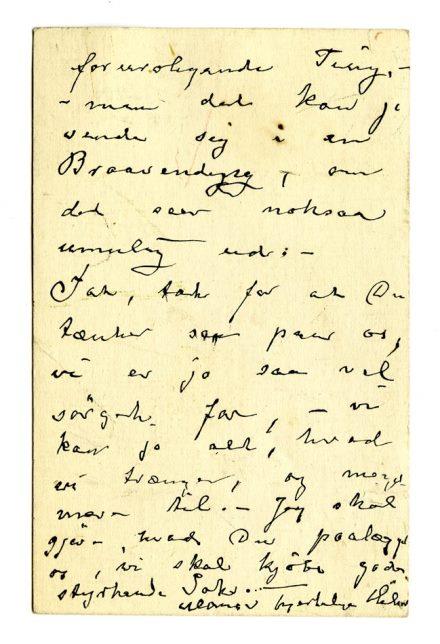 foruroligende Ting, -
- men det kan jo
vende sig i en
Braavending, om
det saa noksaa
umulig ud: -
Tak, tak for at Du
tænker saa paa os,
vi er jo saa vel
sörget for, - vi
har jo alt, hvad
vi trænger, og meget
mere til. - Jeg skal
gjöre hvad Du paalægger
os, vi skal kjöbe gode
styrkende Sake...
hjertelig Hilsen